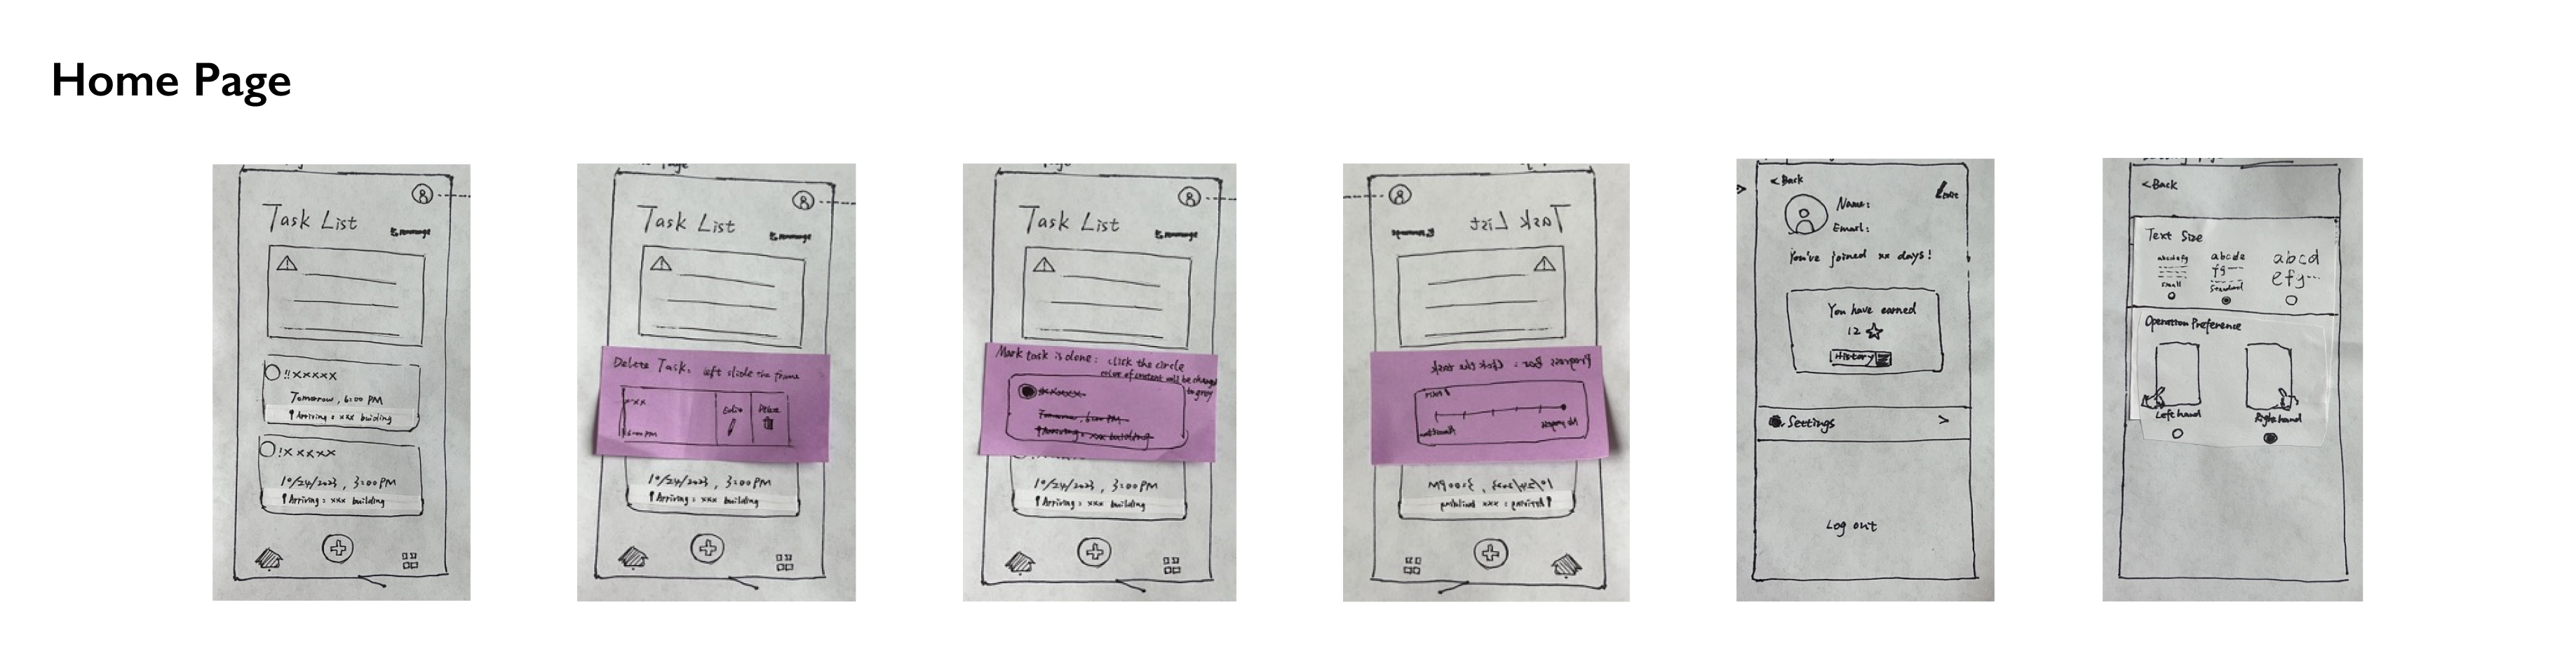 Home Page
Task List
!!xxxxx
Tomorrow, 6:00 PM
Arriving: xxx building
!xxxxx
10/24/2023, 3:00 PM
Arriving: xxx building
Page
Task List
Delete Task: left slide the frame
Delete
10/24/2023, 3:00 PM
Arriving: xxx building
Task List
Mark task is done: click the circle
color of content will be changed
to grey
xxxxx
Tomorrow, 6:00 PM
Arriving: xxx building
10/24/2023, 3:00 PM
Arriving: xxx building
Task List
Progress Bar: click the task
No progress
10/24/2023, 3:00 PM
Arriving: xxx building
< Back
Edit
Name:
Email:
You've joined xx days!
You have earned
12
History
Settings >
Log out
< Back
Text Size
abcdefg
Small
abcde
fg
Standard
abcd
efg
Operation Preference
Left hand
Right hand